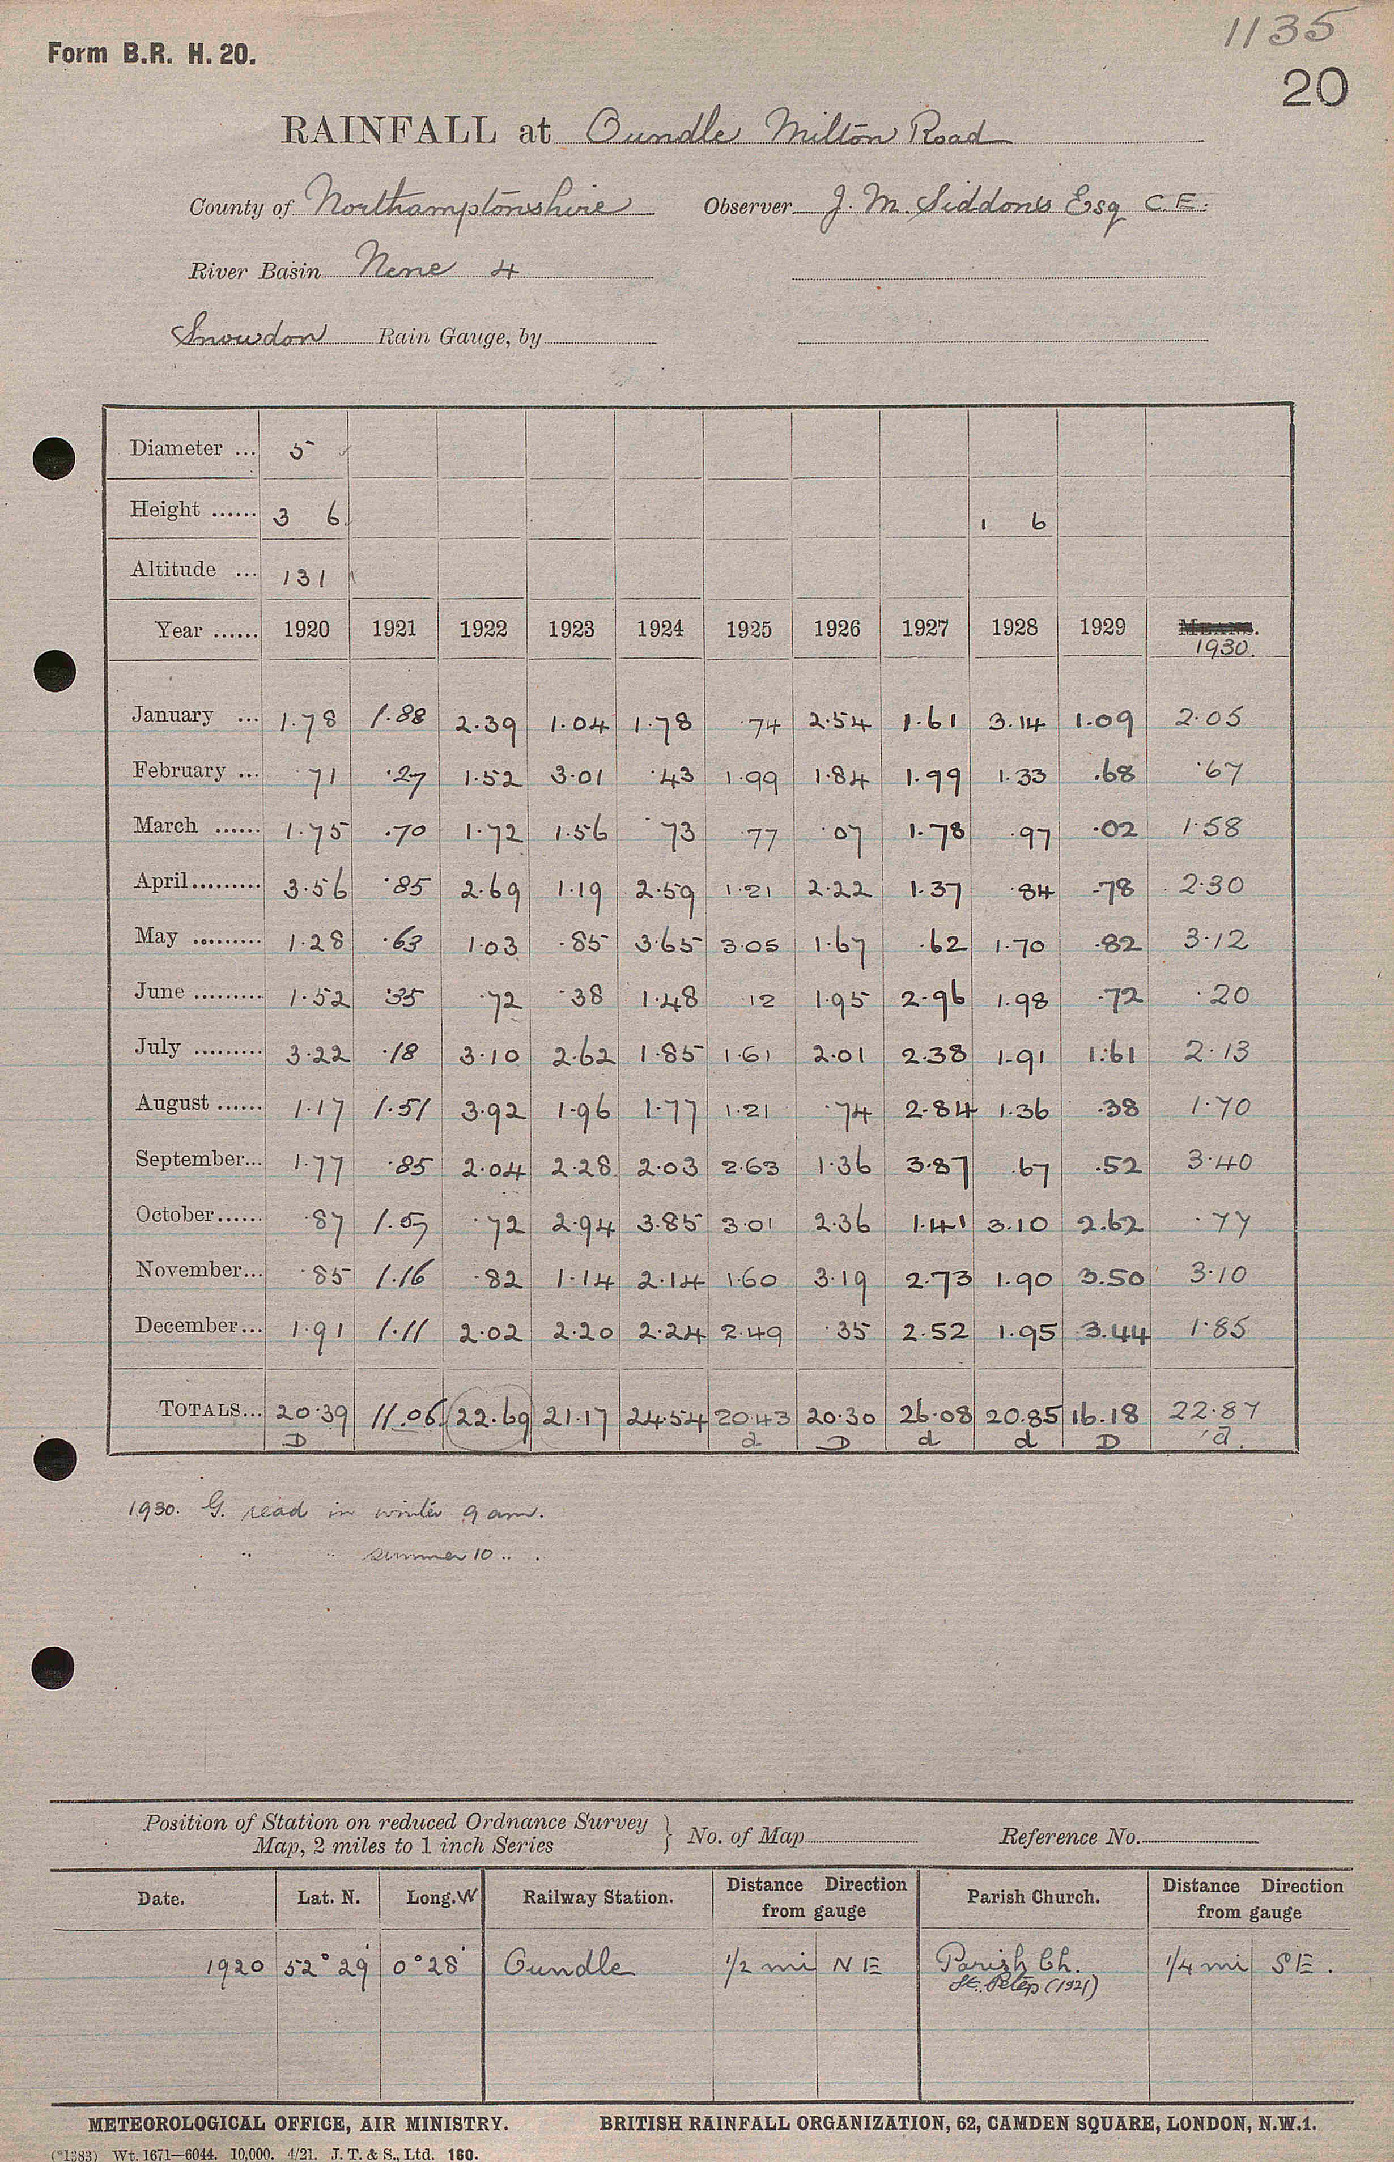 1135
Form B.R. H. 20.
20
RAINFALL at Oundle Milton Road
County of Northamptonshire Observer J. M. Siddons Esq C.E.
River Basin Nene 4
Snowdon Rain Gauge, by
Diameter ... 5
Height ...... 3 6 1 6
Altitude ... 131
Year ...... 1920 1921 1922 1923 1924 1925 1926 1927 1928 1929 MEANS.
1930.
January ... 1.78 1.88 2.39 1.04 1.78 74 2.54 1.61 3.14 1.09 2.05
February ... .71 .27 1.52 3.01 .43 1.99 1.84 1.99 1.33 .68 .67
March ...... 1.75 .70 1.72 1.56 .73 77 .07 1.78 .97 .02 1.58
April......... 3.56 .85 2.69 1.19 2.59 1.21 2.22 1.37 .84 .78 2.30
May ......... 1.28 .63 1.03 .85 3.65 3.05 1.67 .62 1.70 .82 3.12
June ......... 1.52 .35 .72 .38 1.48 12 1.95 2.96 1.98 .72 .20
July ......... 3.22 .18 3.10 2.62 1.85 1.61 2.01 2.38 1.91 1.61 2.13
August ...... 1.17 1.51 3.92 1.96 1.77 1.21 .74 2.84 1.36 .38 1.70
September... 1.77 .85 2.04 2.28 2.03 2.63 1.36 3.87 .67 .52 3.40
October...... .87 1.57 .72 2.94 3.85 3.01 2.36 1.41 3.10 2.62 .77
November... .85 1.16 .82 1.14 2.14 1.60 3.19 2.73 1.90 3.50 3.10
December... 1.91 1.11 2.02 2.20 2.24 2.49 .35 2.52 1.95 3.44 1.85
TOTALS... 20.39 11.06 22.69 21.17 24.54 20.43 20.30 26.08 20.85 16.18 22.87
D d D d d D d.
1930. G. read in winter 9 am.
" " summer 10 " .
Position of Station on reduced Ordnance Survey
Map, 2 miles to 1 inch Series } No. of Map Reference No.
Date. Lat. N. Long. W Railway Station. Distance from gauge Direction Parish Church. Distance from gauge Direction
1920 52° 29' 0° 28' Oundle 1/2 mi N E Parish Ch. 1/4 mi S E.
St. Peters (1921)
METEOROLOGICAL OFFICE, AIR MINISTRY. BRITISH RAINFALL ORGANIZATION, 62, CAMDEN SQUARE, LONDON, N.W.1.
(*1383) Wt. 1671—6044. 10,000. 4/21. J. T. & S., Ltd. 160.